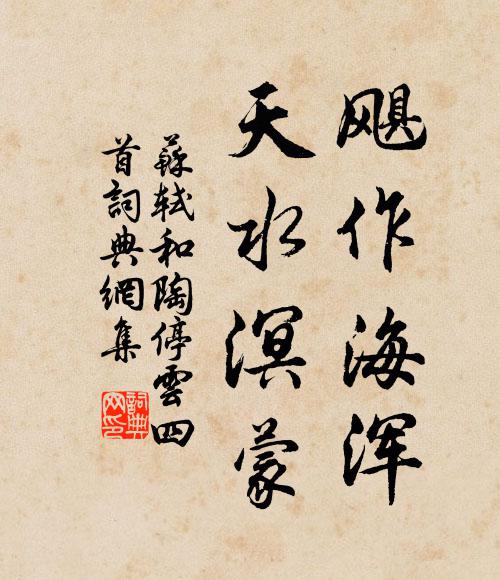 飓作海浑
天水溟蒙
蘇軾和陶停雲四
首詞典網集
詞典
网印